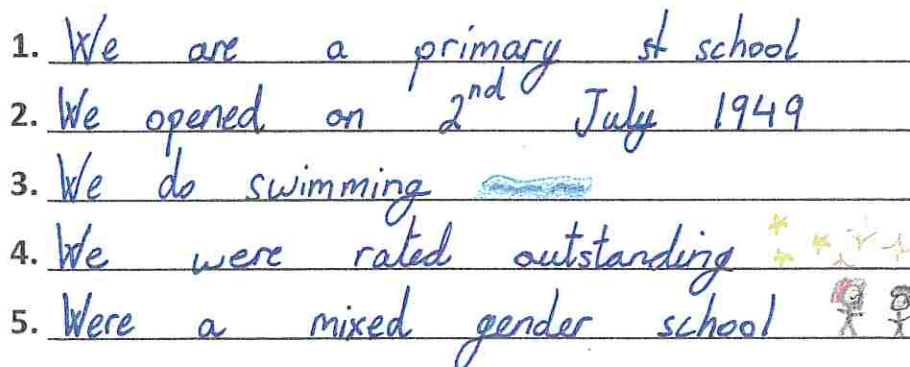 1. We are a primary st school
2. We opened on 2nd July 1949
3. We do swimming
4. We were rated outstanding
5. Were a mixed gender school